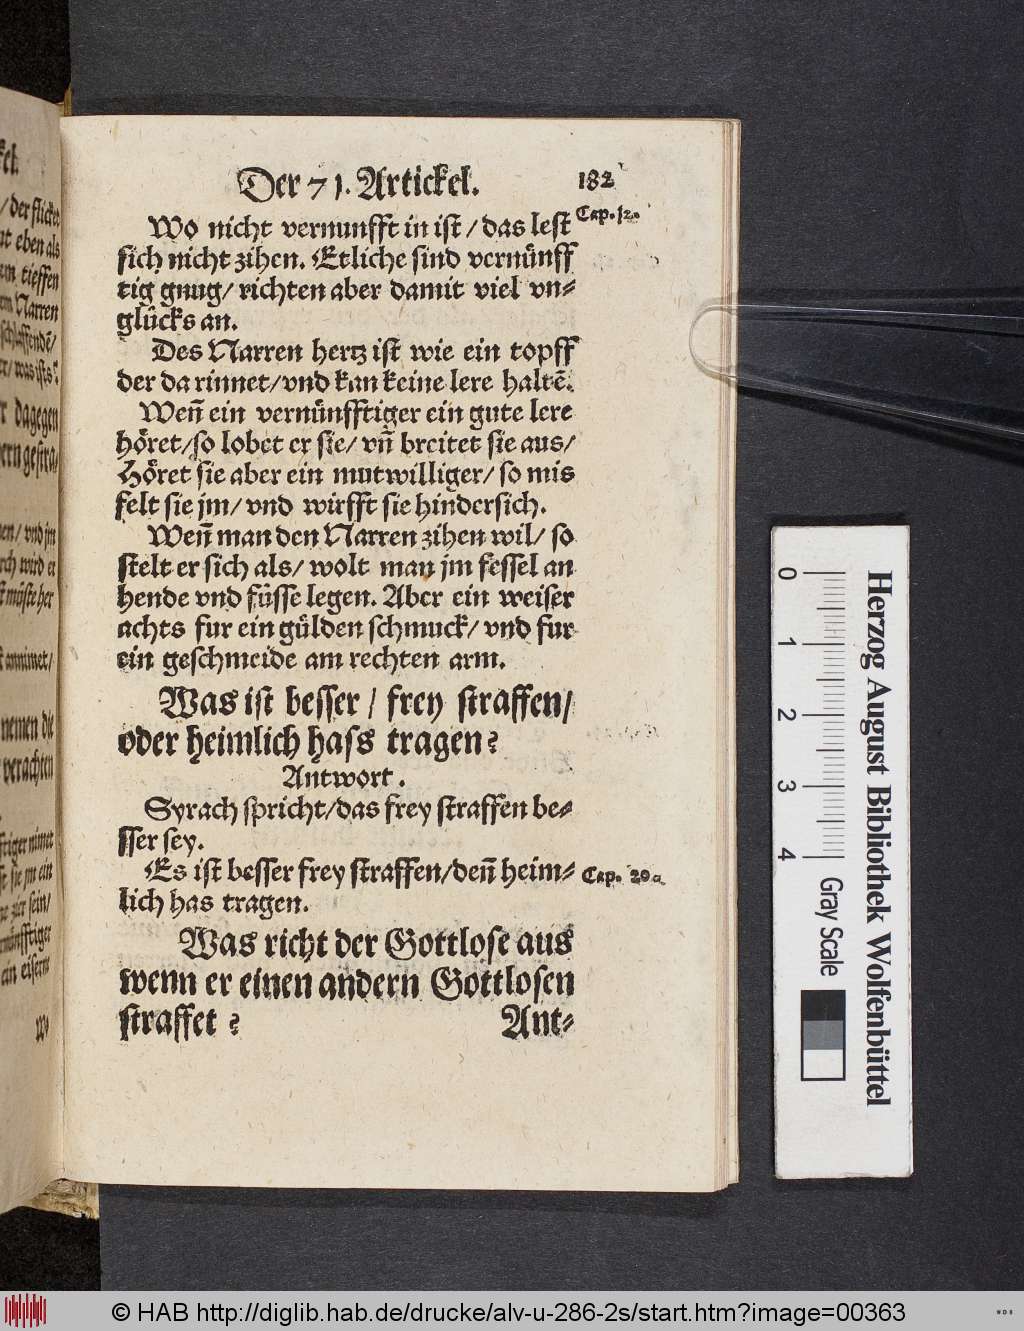 Der 71. Artickel. 182
Wo nicht vernunfft in ist / das lest
Cap. 12.
sich nicht zihen. Etliche sind vernünff
tig gnug/ richten aber damit viel vn⸗
glücks an.
Des Narren hertz ist wie ein topff
der da rinnet/vnd kan keine lere haltẽ.
Weñ ein vernünfftiger ein gute lere
höret/so lobet er sie/ vñ breitet sie aus/
Höret sie aber ein mutwilliger/ so mis
felt sie jm/ vnd wirfft sie hindersich.
Weñ man den Narren zihen wil/ so
stelt er sich als/ wolt man jm fessel an
hende vnd füsse legen. Aber ein weiser
achts fur ein gülden schmuck/ vnd fur
ein geschmeide am rechten arm.
Was ist besser / frey straffen/
oder heimlich hass tragen?
Antwort.
Syrach spricht/das frey straffen be⸗
sser sey.
Es ist besser frey straffen/deñ heim⸗
Cap. 20.
lich has tragen.
Was richt der Gottlose aus
wenn er einen andern Gottlosen
straffet?
Ant⸗
/ der flicket
eben als
tieffen
Narren
schlaffendẽ/
was ists?
dagegen
vnd jm
wird er
müste her
nemen die
verachten
sie jm ein
sein/
ein eisern
0 1 2 3 4
Gray Scale
Herzog August Bibliothek Wolfenbüttel
© HAB http://diglib.hab.de/drucke/alv-u-286-2s/start.htm?image=00363